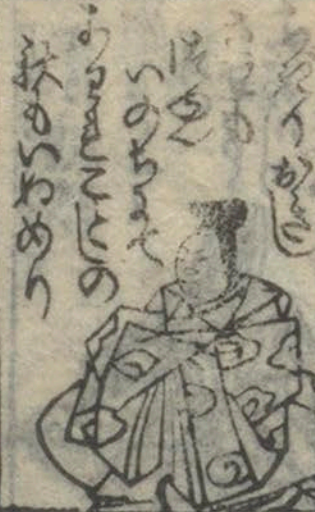 ちきりおきし
させもか
露を
いのちにて
あはれことしの
秋もいぬめり